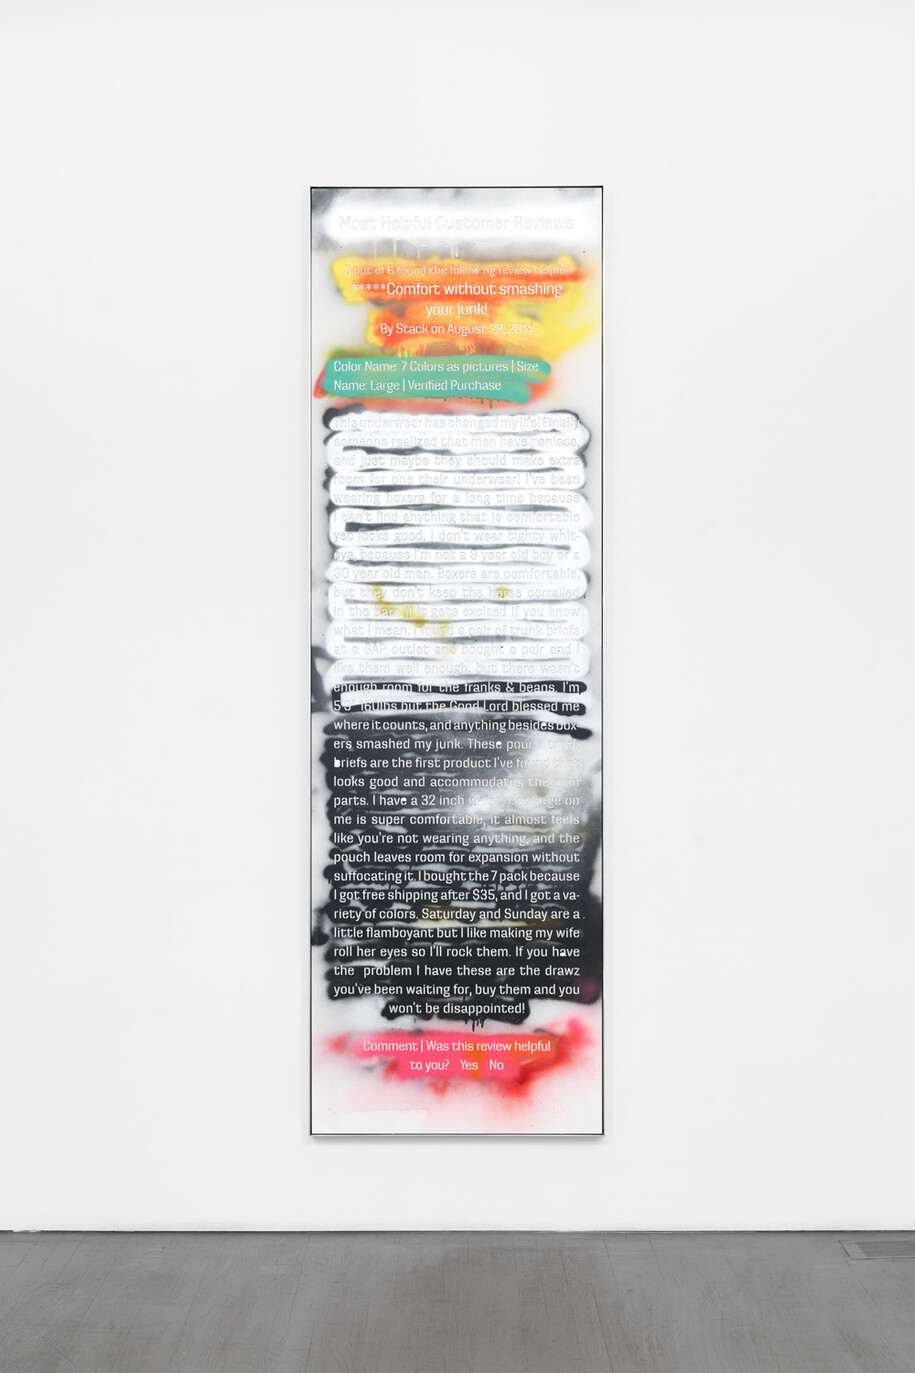 Most Helpful Customer Reviews
6 out of 6 found the following review helpful
*****Comfort without smashing
your junk!
By Stack on August 28, 2014
Color Name: 7 Colors as pictures | Size
Name: Large | Verified Purchase
This underwear has changed my life! Finally
someone realized that men have penises,
and just maybe they should make extra
room for one their underwear! I've been
wearing boxers for a long time because
I can't find anything that is comfortable
yet looks good. I don't wear tighty whit-
eys, because I'm not a 9 year old boy or a
90 year old man. Boxers are comfortable,
but they don't keep the horse corralled
in the barn if it gets excited if you know
what I mean. I found a pair of trunk briefs
at a GAP outlet and bought a pair and I
like them well enough, but there wasn't
enough room for the franks & beans. I'm
160lbs but the Good Lord blessed me
where it counts, and anything besides box-
ers smashed my junk. These pouch
briefs are the first product I've found that
looks good and accommodates the man
parts. I have a 32 inch large on
me is super comfortable, it almost feels
like you're not wearing anything, and the
pouch leaves room for expansion without
suffocating it. I bought the 7 pack because
I got free shipping after $35, and I got a va-
riety of colors. Saturday and Sunday are a
little flamboyant but I like making my wife
roll her eyes so I'll rock them. If you have
the problem I have these are the drawz
you've been waiting for, buy them and you
won't be disappointed!
Comment | Was this review helpful
to you? Yes No